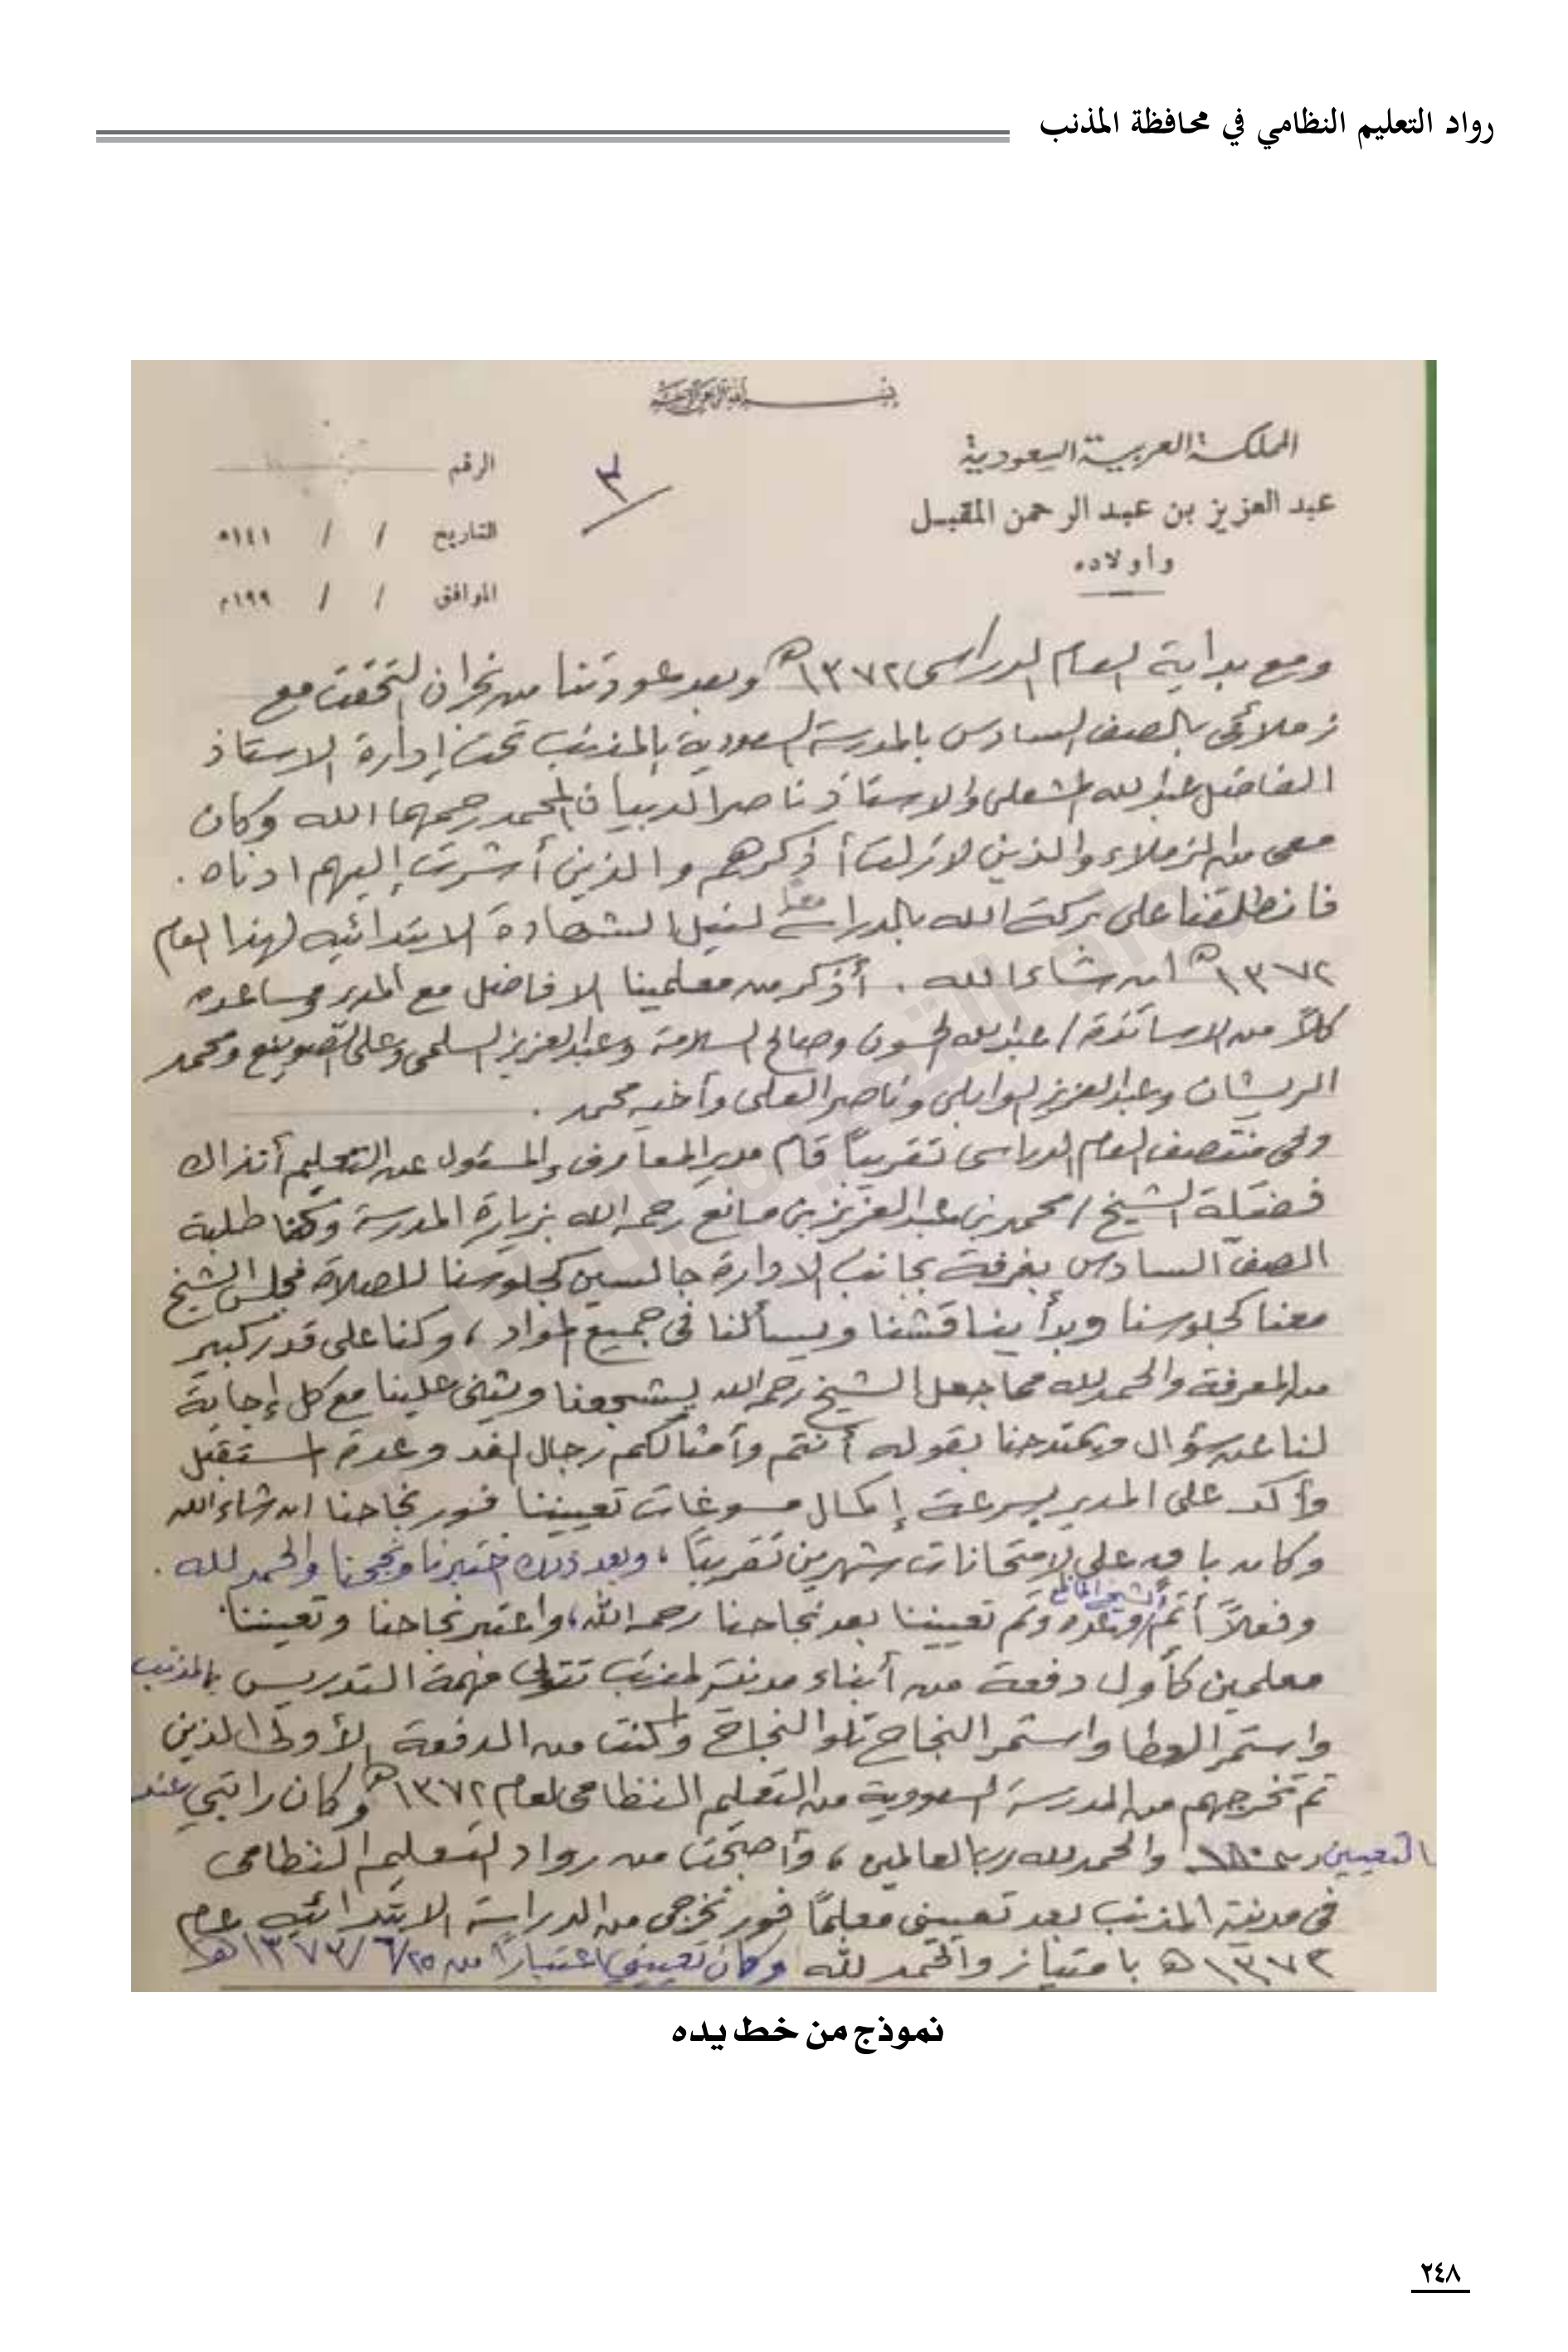 رواد التعليم النظامي في محافظة المذنب
المملكة العربية السعودية
عبد العزيز بن عبد الرحمن المقبل
وأولاده
٣
الرقم
التاريخ / / ١٤١هـ
الموافق / / ١٩٩م
ومع بداية العام الدراسى ١٣٧٢هـ وبعد عودتنا من نجران التحقت مع
زملائى بالصف السادس بالمدرسة السعودية بالمذنب تحت إدارة الاستاذ
الفاضل عبدالله المشعلى والاستاذ ناصر الدبيان المحمد رحمهما الله وكان
معى من الزملاء والذين لازلت أذكرهم والذين أشرت إليهم ادناه .
فانطلقنا على بركة الله بالدراسة معا لنيل الشهادة الابتدائيه لهذا العام
١٣٧٢هـ ان شاء الله . أذكر من معلمينا الافاضل مع المدير ومساعده
كلاً من الاساتذة / عبدالله الحسون وصالح السلامة وعبدالعزيز السلمى وعلى الضويفع ومحمد
الريشان وعبدالعزيز الوابلى وناصر العلى وأخيه محمد .
وفى منتصف العام الدراسى تقريباً قام مدير المعارف والمسئول عن التعليم أنذاك
فضيلة الشيخ / محمد بن عبدالعزيز بن مانع رحمه الله بزيارة المدرسة وكنا طلبة
الصف السادس بغرفة بجانب الادارة جالسين كجلوسنا للصلاة فجلس الشيخ
معنا كجلوسنا وبدأ يناقشنا ويسألنا فى جميع المواد ، وكنا على قدر كبير
من المعرفة والحمد لله مما جعل الشيخ رحمه الله يشجعنا ويثنى علينا مع كل إجابة
لنا عن سؤال ويمتدحنا بقوله أنتم وأمثالكم رجال الغد وعدة المستقبل
وأكد على المدير بسرعة إكمال مسوغات تعييننا فور نجاحنا ان شاء الله
وكان باقى على الإمتحانات شهرين تقريبًا ، وبعد ذلك اختبرنا ونجحنا والحمد لله .
وفعلاً أتم الشيخ المانع وعده وتم تعييننا بعد نجاحنا رحمه الله ، واعتبر نجاحنا وتعييننا
معلمين كأول دفعة من أبناء مدينة المذنب تتولى مهمة التدريس بالمذنب
واستمر العطا واستمر النجاح تلو النجاح وكنت من الدفعة الأولى الذين
تم تخرجهم من المدرسة السعودية من التعليم النظامى لعام ١٣٧٢هـ وكان راتبي عند
التعيين والحمد لله رب العالمين ، وأصبحت من رواد التعليم النظامى
فى مدينة المذنب بعد تعيينى معلمًا فور تخرجى من الدراسة الابتدائيه عام
١٣٧٢هـ بامتياز والحمد لله وكان تعييني اعتباراً من ١٣٧٣/٦/٢٥هـ
نموذج من خط يده
٢٤٨